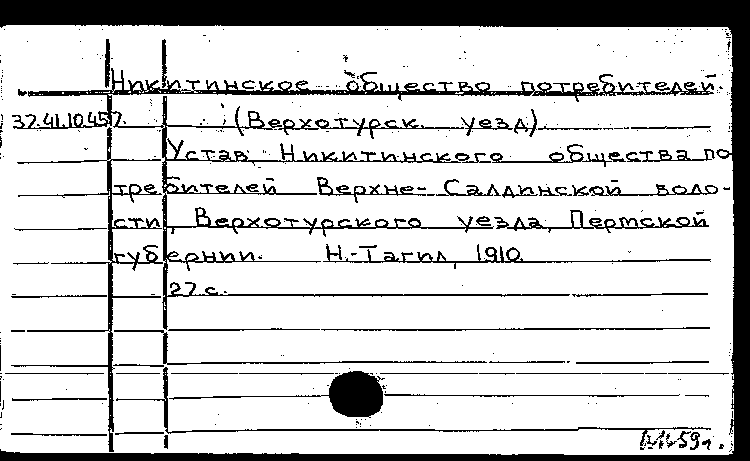 Никитинское общество потребителей.
37.41.10.457. (Верхотурск. уезд)
Устав Никитинского общества по-
требителей Верхне-Салдинской воло-
сти, Верхотурского уезда, Пермской
губернии. Н.-Тагил, 1910.
27 с.